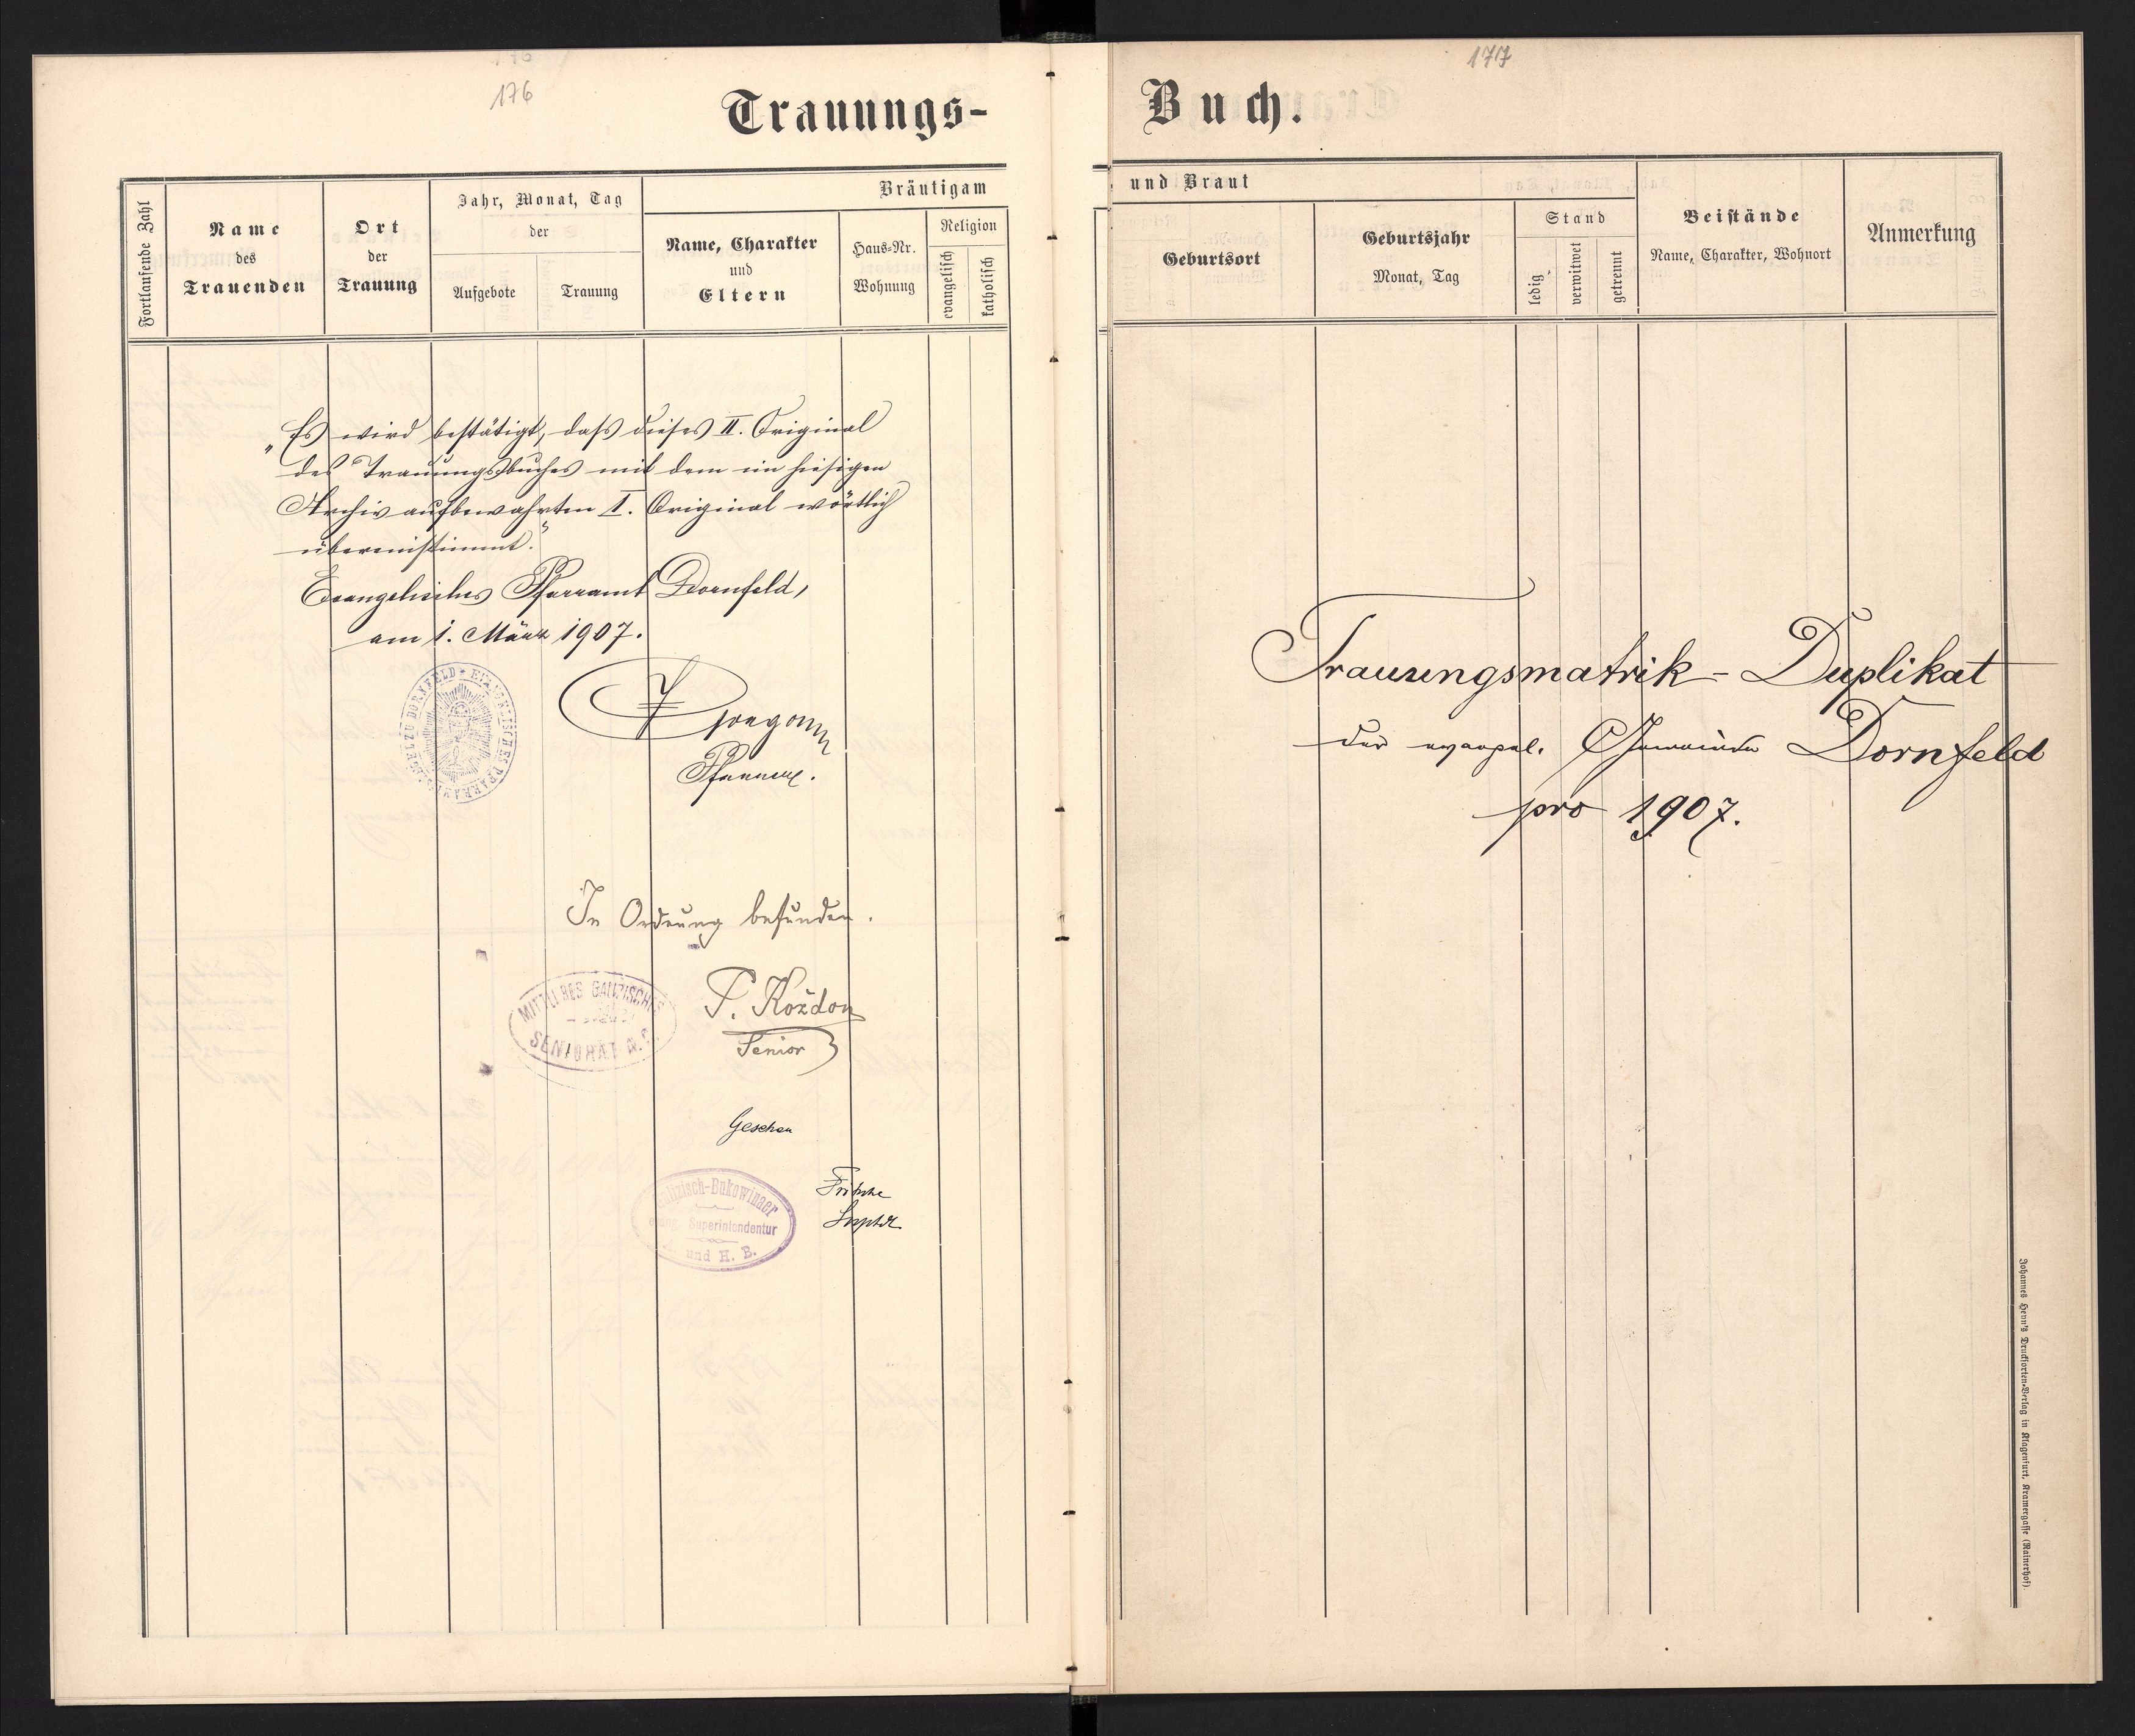 176
Trauungs-
Fortlaufende Zahl
Name
des
Trauenden
Ort
der
Trauung
Jahr, Monat, Tag
der
Aufgebote
Trauung
Bräutigam
Name, Charakter
und
Eltern
Haus-Nr.
Wohnung
Religion
evangelisch
katholisch
„Es wird bestätigt, dass dieses II. Original
des Trauungsbuches mit dem im hiesigen
Archiv aufbewahrten I. Original wörtlich
übereinstimmt."
Evangelisches Pfarramt Dornfeld,
am 1. März 1907.
EVANGELISCHES PFARRAMTS SIEGEL ZU DORNFELD
Pfarrer.
In Ordnung befunden.
MITTLERES GALIZISCHES
SENIORAT A. C.
P. Kożdoń
Senior
Gesehen
Galizisch-Bukowinaer
evang. Superintendentur
und H. B.
Fritsche
Supdt.
177
Buch.
und Braut
Geburtsort
Geburtsjahr
Monat, Tag
Stand
ledig
verwitwet
getrennt
Beistände
Name, Charakter, Wohnort
Anmerkung
Trauungsmatrik-Duplikat
der evangel. Gemeinde Dornfeld
pro 1907.
Johannes Heyn's Drucksorten-Verlag in Klagenfurt, Kramergasse (Rainerhof).